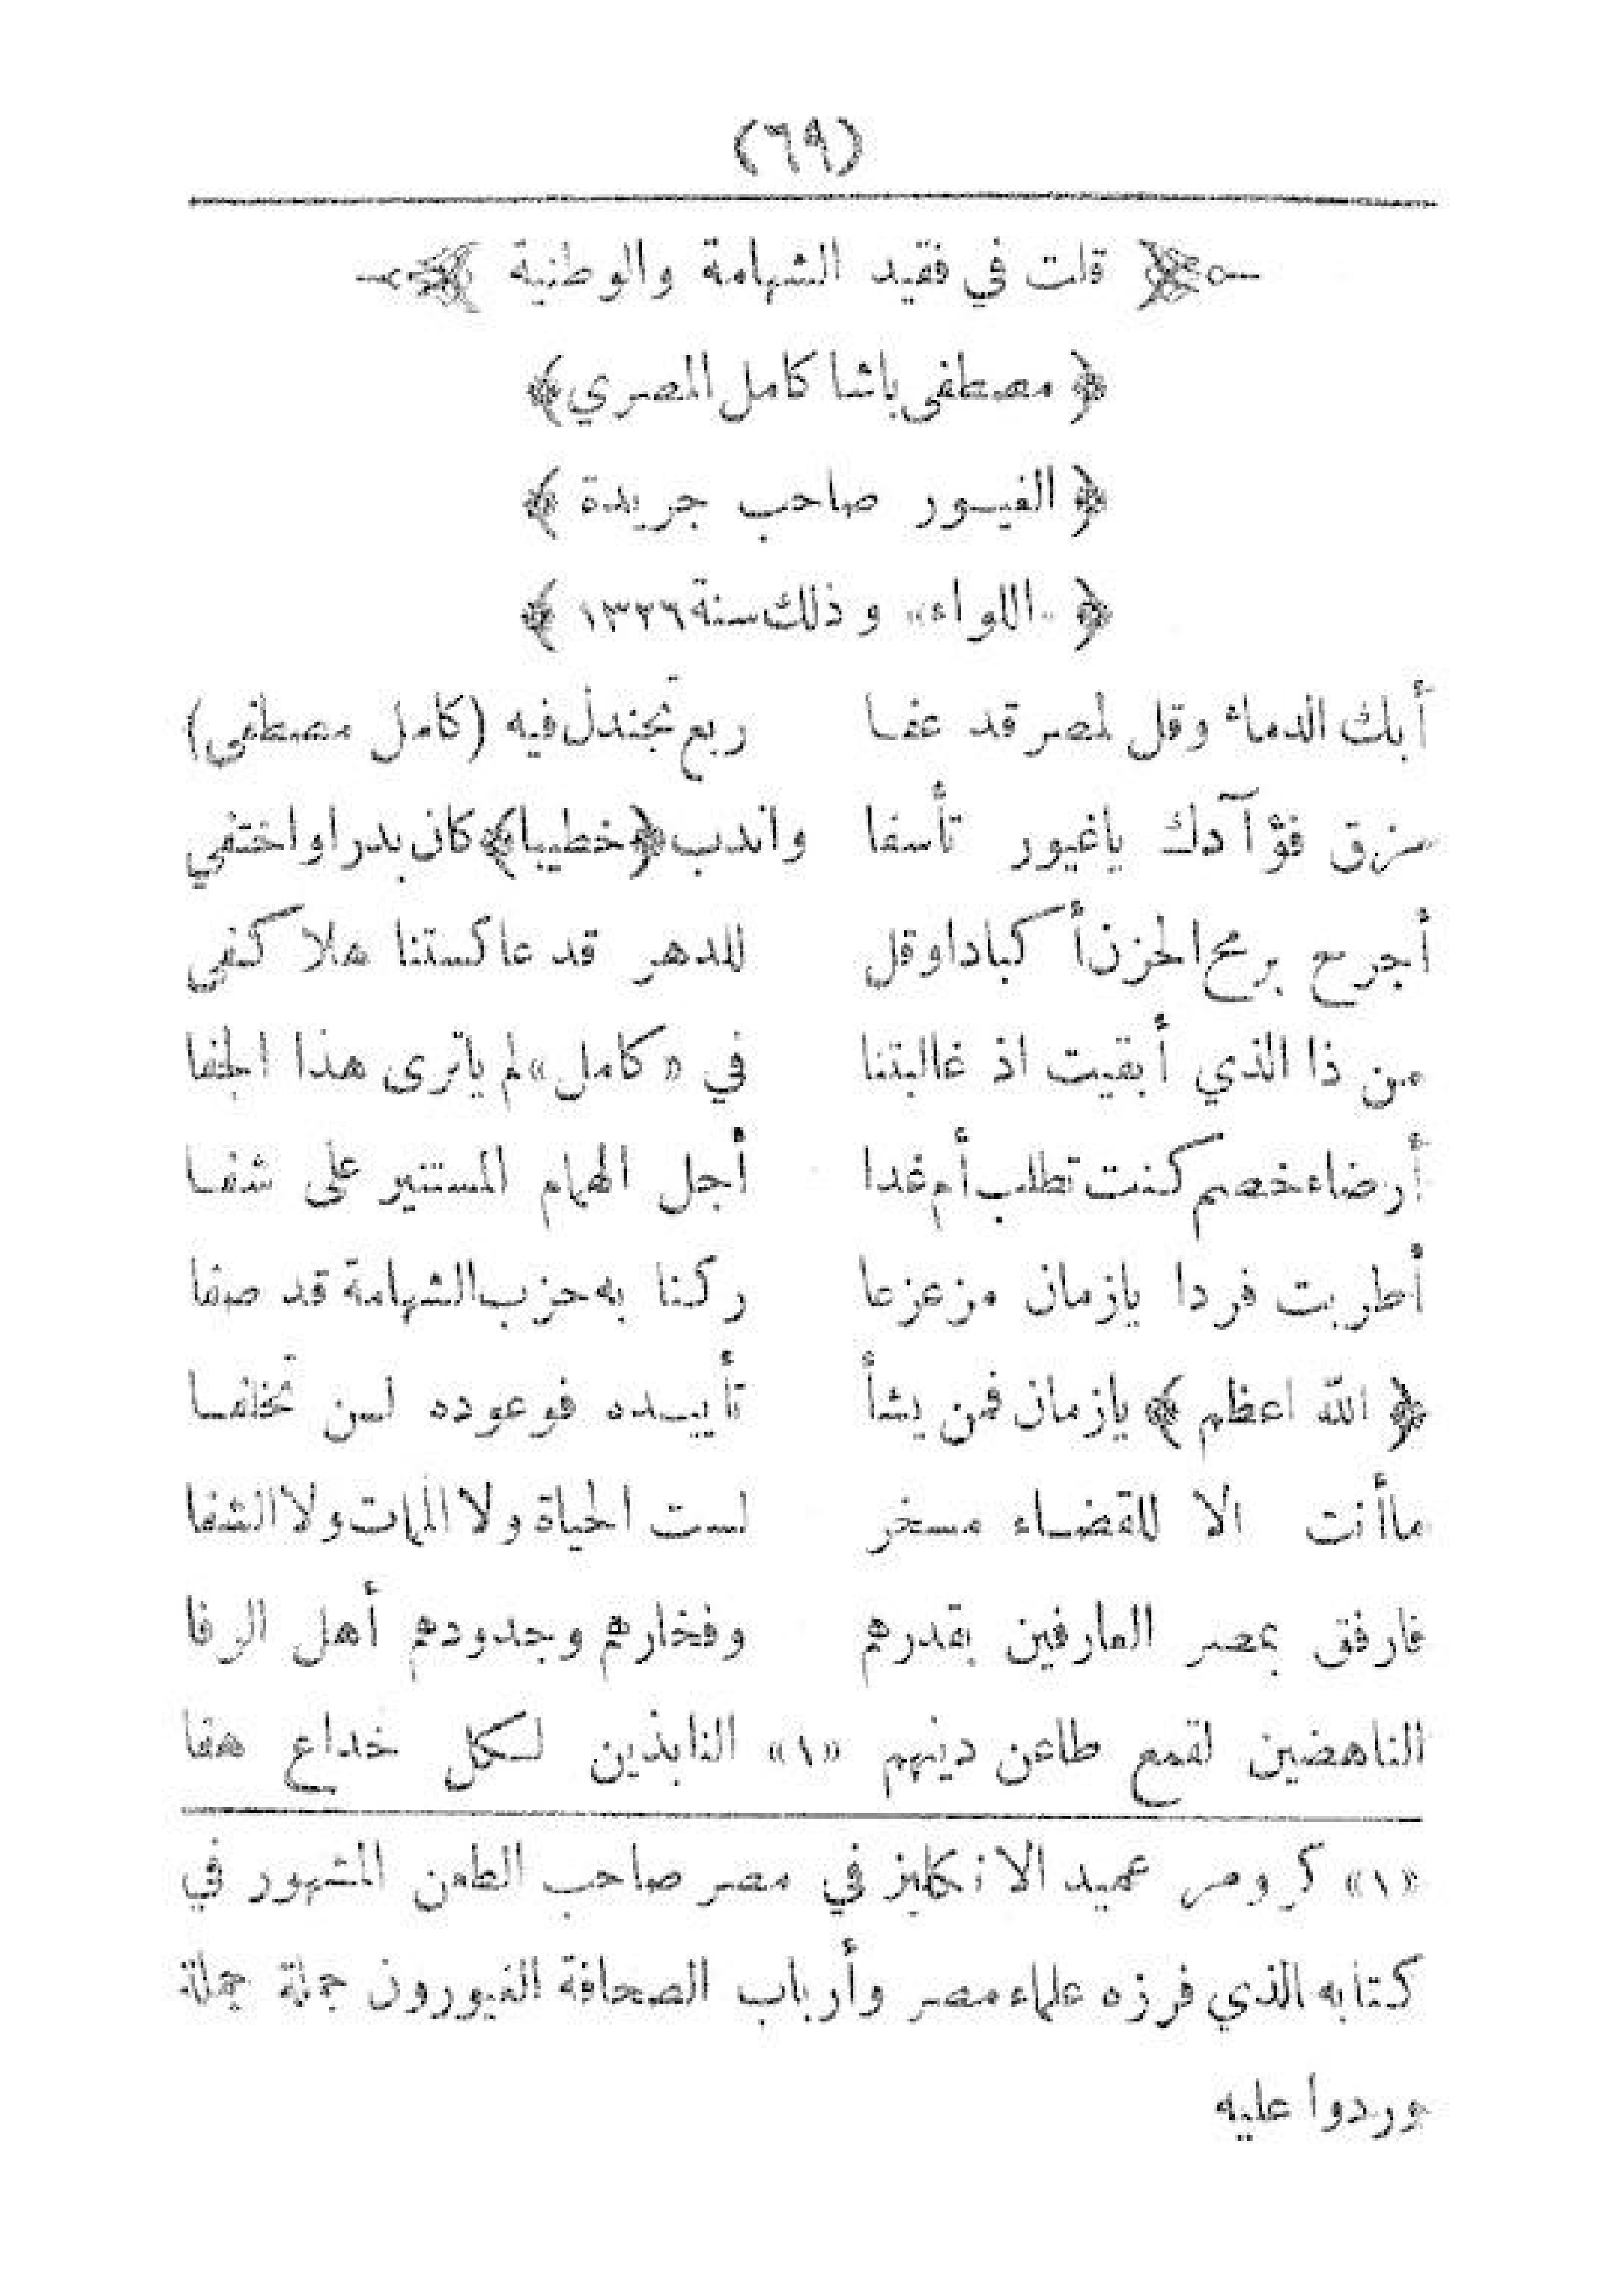 (٦٩)
﴿ قلت في فقيد الشهامة والوطنية ﴾
﴿ مصطفى باشا كامل المصري ﴾
﴿ الغيور صاحب جريدة ﴾
﴿ «اللواء» وذلك سنة ١٣٢٦ ﴾
أبك الدماء وقل لمصر قد عفا ربع تجندل فيه (كامل مصطفى)
مزق فؤآدك ياغيور تأسفا واندب ﴿خطيبا﴾ كان بدرا واختفي
أجرح برمح الحزن أكبادا وقل للدهر قد عاكستنا هلا كفى
من ذا الذي أبقيت اذ غالبتنا في «كامل» لم ياترى هذا الجفا
أرضاء خصم كنت تطلب أم غدا أجل الهمام المستنير على شفا
أطربت فردا يازمان مزعزعا ركنا به حزب الشهامة قد صفا
﴿ الله اعظم ﴾ يازمان فمن يشأ تأييده فوعوده لن تخلفا
ماأنت الا للقضاء مسخر لست الحياة ولا الممات ولا الشفا
فارفق بمصر العارفين بقدرهم وفخارهم وجدودهم أهل الرفا
الناهضين لقمع طاعن دينهم «١» النابذين لكل خداع هفا
«١» كرومر عميد الانكليز في مصر صاحب الطعن المشهور في
كتابه الذي فرزه علماء مصر وأرباب الصحافة الغيورون جملة جملة
وردوا عليه